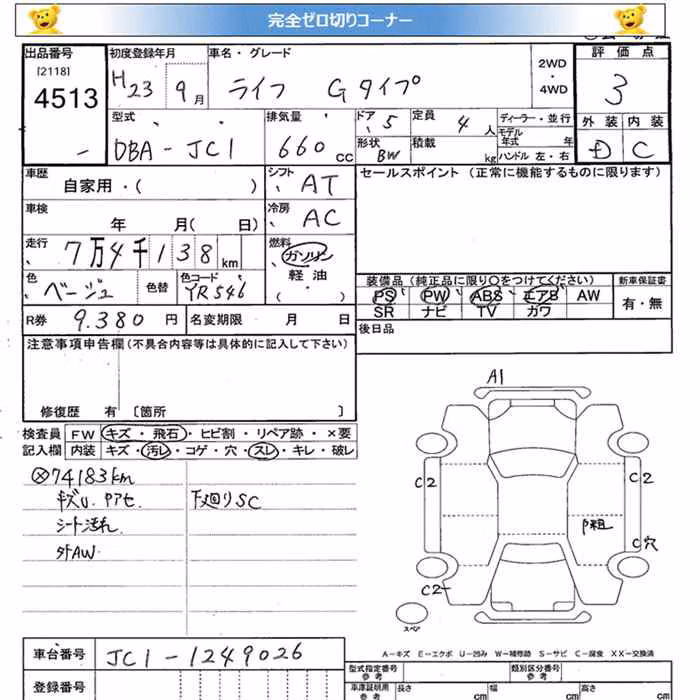 完全ゼロ切りコーナー
出品番号 初度登録年月 車名・グレード 2WD・4WD 評価点
[2118]
4513 H23 9月 ライフ Gタイプ 3
型式 排気量 ドア 5 定員 4人 ディーラー・並行 外装 内装
DBA-JC1 660cc 形状 BW 積載 kg モデル年式 年 D C
ハンドル 左・右
車歴 自家用・( ) シフト AT セールスポイント (正常に機能するものに限ります)
車検 年 月( 日) 冷房 AC
走行 7万4千138km 燃料 ガソリン
軽油
( )
色 ベージュ 色替 色コード YR546
装備品 (純正品に限り○をつけてください) 新車保証書
PS PW ABS エアB AW 有・無
SR ナビ TV カワ
R券 9.380円 名変期限 月 日 後日品
注意事項申告欄(不具合内容等は具体的に記入して下さい)
修復歴 有 [箇所 ]
検査員 FW キズ・飛石・ヒビ割・リペア跡・×要
記入欄 内装 キズ・汚レ・コゲ・穴・スレ・キレ・破レ
74183km
キズU. アセ. 下廻りSC
シート汚れ
外AW.
A1
C2
C2
P組
C穴
C2
スペア
A-キズ E-エクボ U-凹み W-補修跡 S-サビ C-腐食 XX-交換済
車台番号 JC1-1249026
登録番号
型式指定番号 参考 類別区分番号 参考
車庫証明用 参考 長さ cm 幅 cm 高さ cm